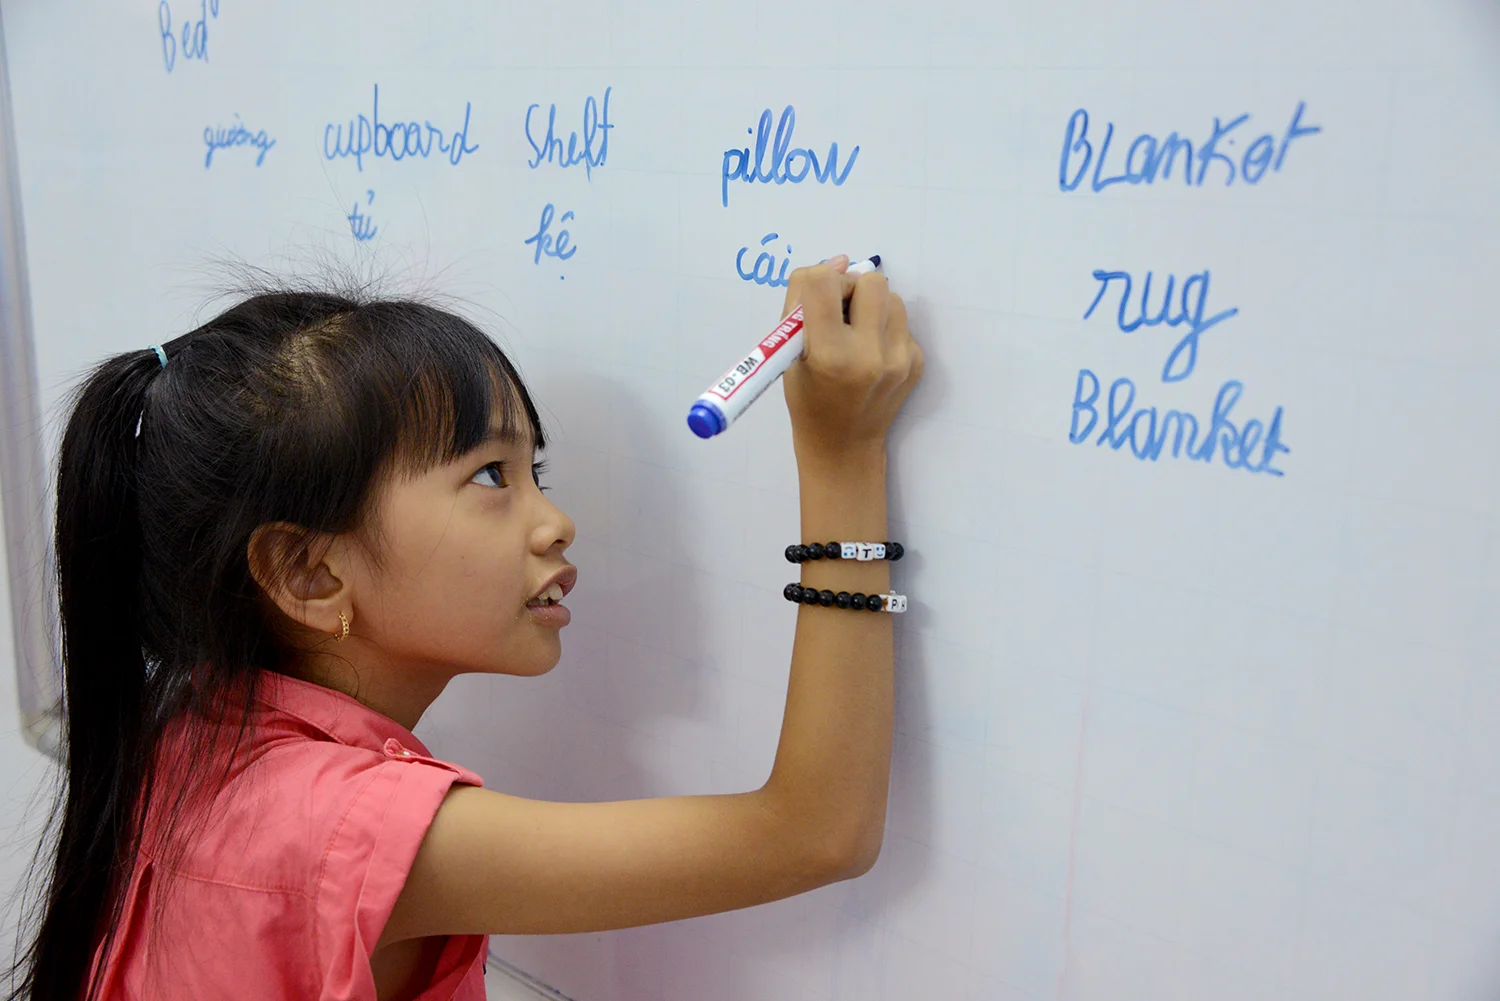 Bed
giường
cupboard
tủ
Shelf
kệ
pillow
cái
BLanket
rug
Blanket
TRẮNG
WB-03
T
P